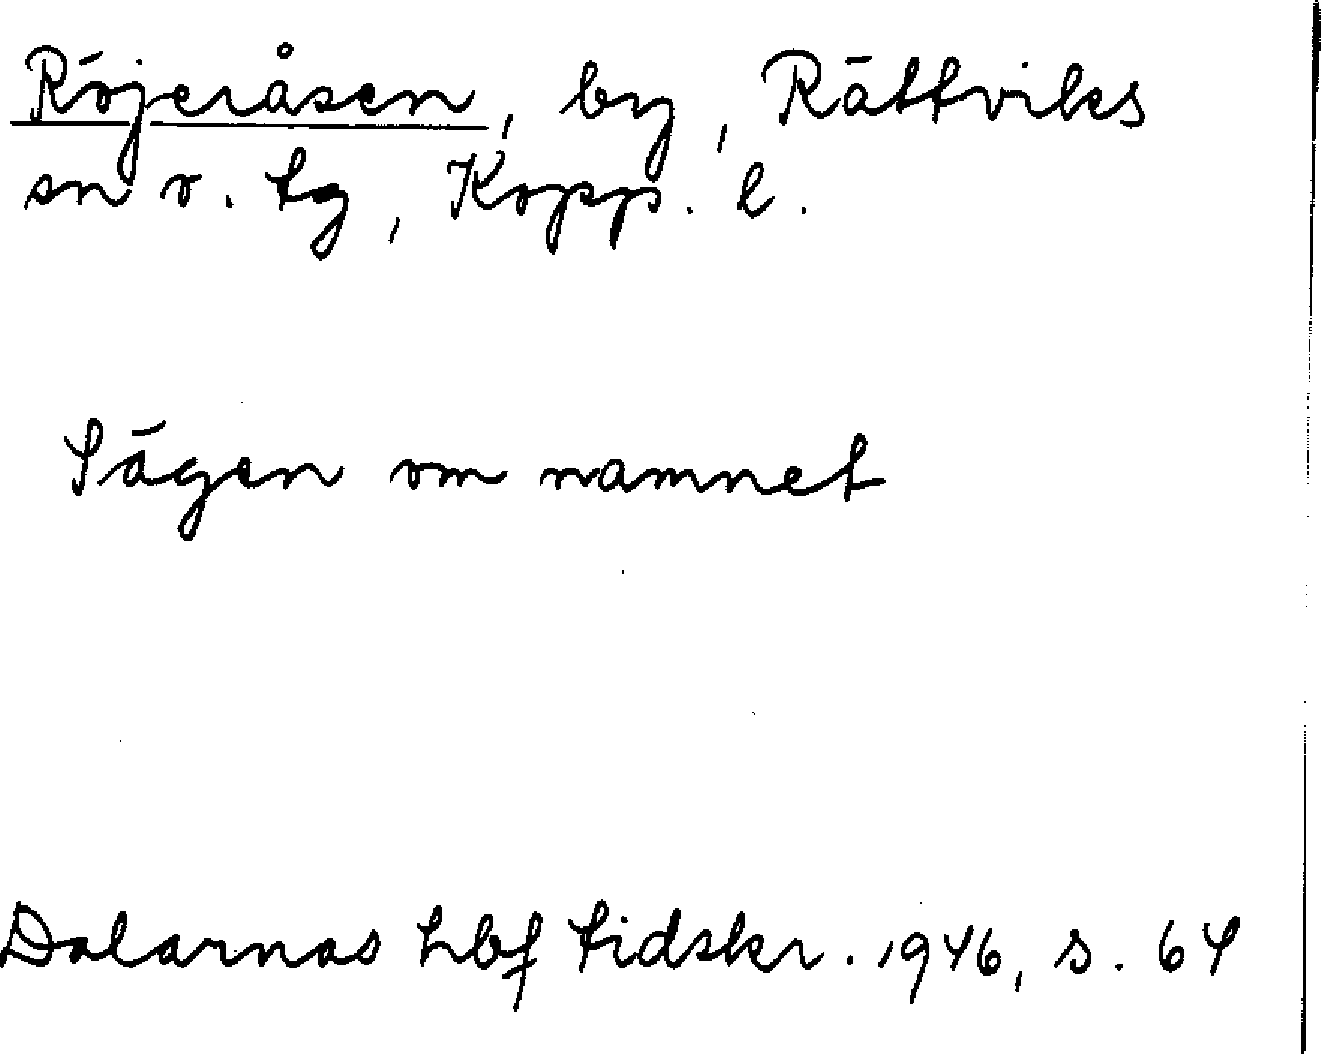 Röjeråsen, by, Rättviks
sn o. tg, Kopp. l.
Sägen om namnet
Dalarnas hbf tidskr. 1946, s. 64